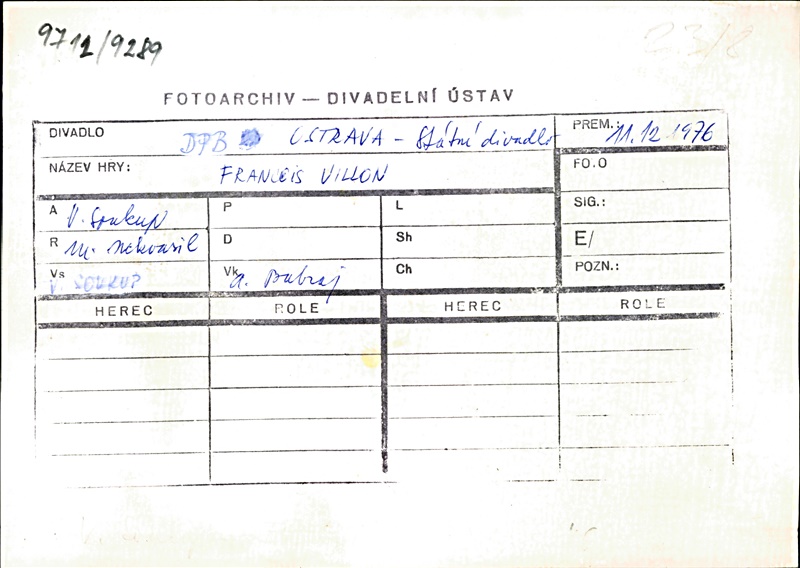 9712/9289
FOTOARCHIV — DIVADELNÍ ÚSTAV
DIVADLO DPB OSTRAVA - Státní divadlo PREM.: 11.12 1976
NÁZEV HRY: FRANCOIS VILLON FO.O
A V. Soukup P L SIG.:
R M. Nekvasil D Sh E/
Vs V. SOUKUP Vk A. Babraj Ch POZN.:
HEREC ROLE HEREC ROLE